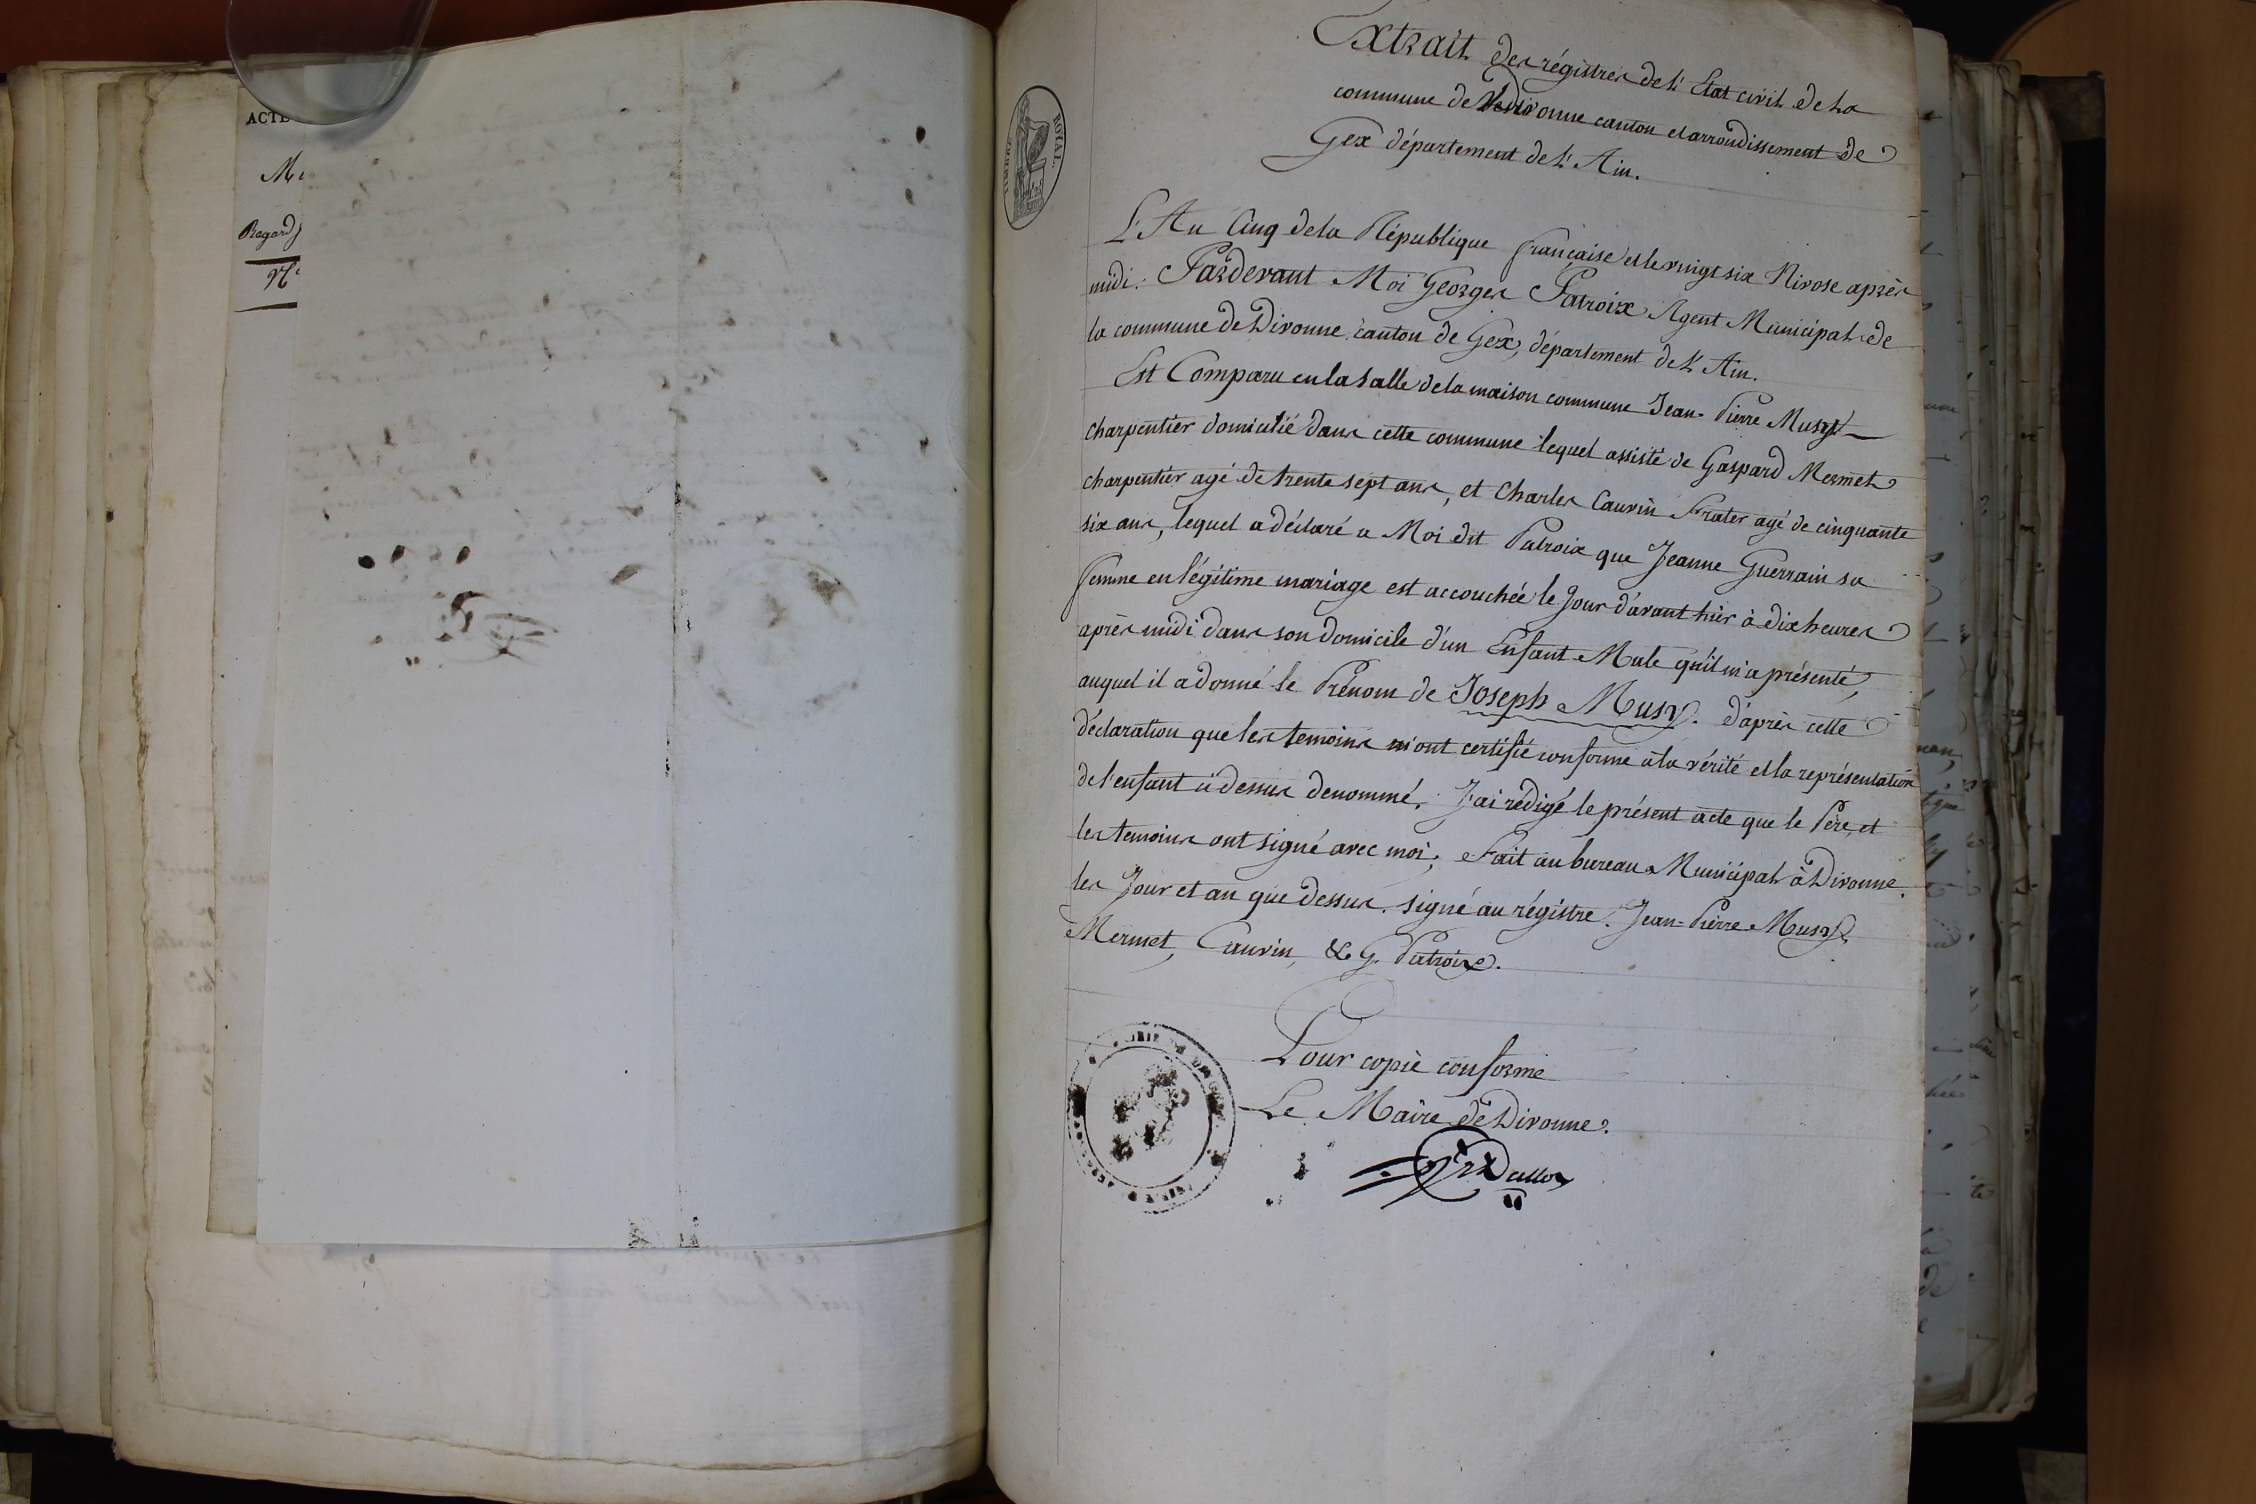 ACTE
Regard
Extrait des régistres de l'Etat civil de la
commune de Divonne canton et arrondissement de
Gex département de l'Ain.
TIMBRE ROYAL.
L'An Cinq de la République française et le vingt six Nivose après
midi. Pardevant Moi Georges Patroix Agent Municipal de
la commune de Divonne canton de Gex, département de l'Ain.
Est Comparu en la Salle de la maison commune Jean-Pierre Musy
charpentier domicilié dans cette commune lequel assisté de Gaspard Mermet
charpentier agé de trente sept ans, et Charles Cauvin Frater agé de cinquante
six ans, lequel a déclaré a Moi dit Patroix que Jeanne Guerrain sa
femme en légitime mariage est accouchée le Jour d'avant hier à dix heures
après midi dans son domicile d'un Enfant Male qu'il m'a présenté,
auquel il a donné le Prénom de Joseph Musy. d'après cette
déclaration que les temoins m'ont certifié conforme à la vérité et la représentation
de l'enfant ci dessus denommé. J'ai rédigé le présent acte que le Père, et
les temoins ont signé avec moi; Fait au bureau Municipal à Divonne.
les Jour et an que dessus. signé au régistre. Jean-Pierre Musy,
Mermet, Cauvin, & G. Patroix.
Pour copie conforme
Le Maire de Divonne.